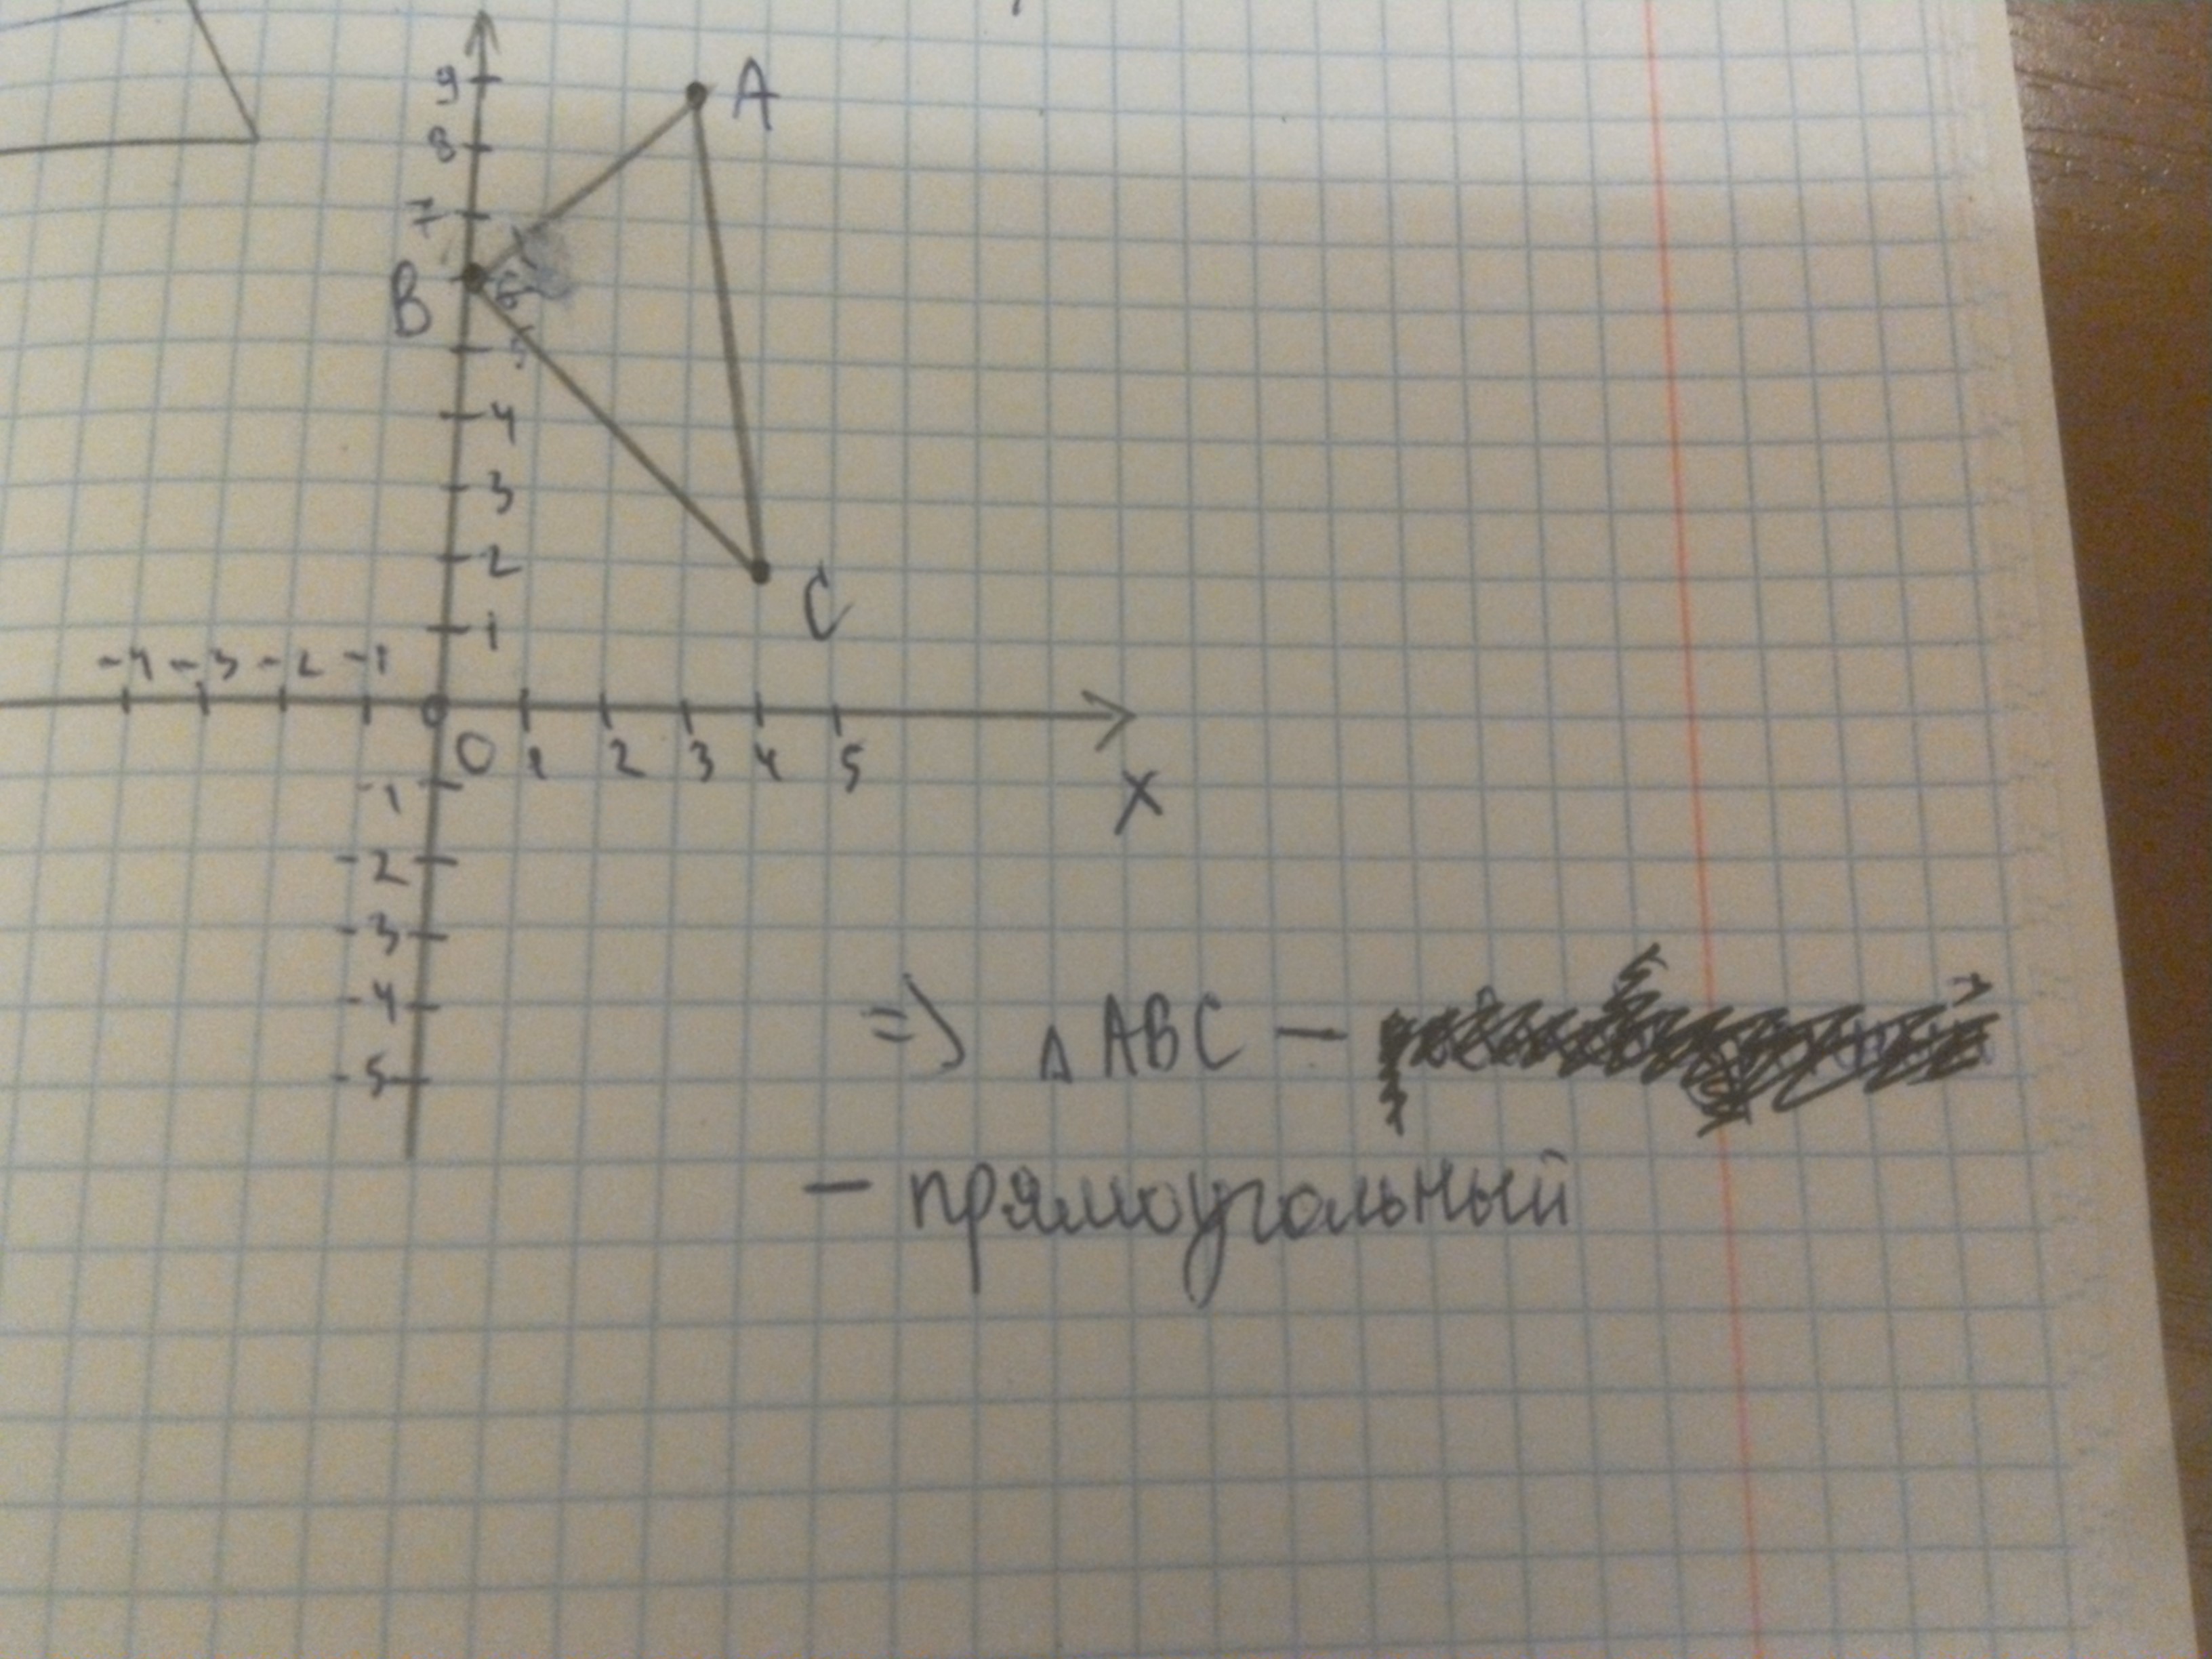 9
A
8
7
B 6
5
4
3
2
C
1
-4 -3 -2 -1
0 1 2 3 4 5
-1 X
-2
-3
-4
=> △ ABC —
-5
— прямоугольный